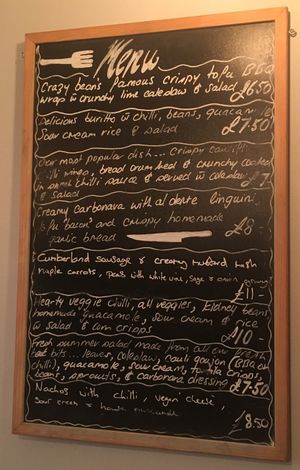 Menu
Crazy bean's famous crispy tofu BBQ
wrap w crunchy lime coleslaw & salad £6.50
Delicious burrito w chilli, beans, guacamole
Sour cream rice & salad £7.50
Our most popular dish... crispy cauli
wings, bread crumbed & crunchy coated
in sweet chilli sauce & served w coleslaw
& salad £7
Creamy carbonara with al dente linguini
tofu 'bacon' and crispy homemade
garlic bread £8-
Cumberland sausage & creamy mustard mash
Maple carrots, peas with white wine, sage & onion
£11-
Hearty veggie chilli, all veggies, kidney beans
homemade guacamole, sour cream & rice
w salad & corn crisps £10-
fresh summer salad made from all our fresh
bits... leaves, coleslaw, cauli goujon (BBQ or
chilli), guacamole, sour cream, tortilla crisps,
beans, sprouts, & carbonara dressing £7.50
Nachos with chilli, vegan cheese,
sour cream & £8.50